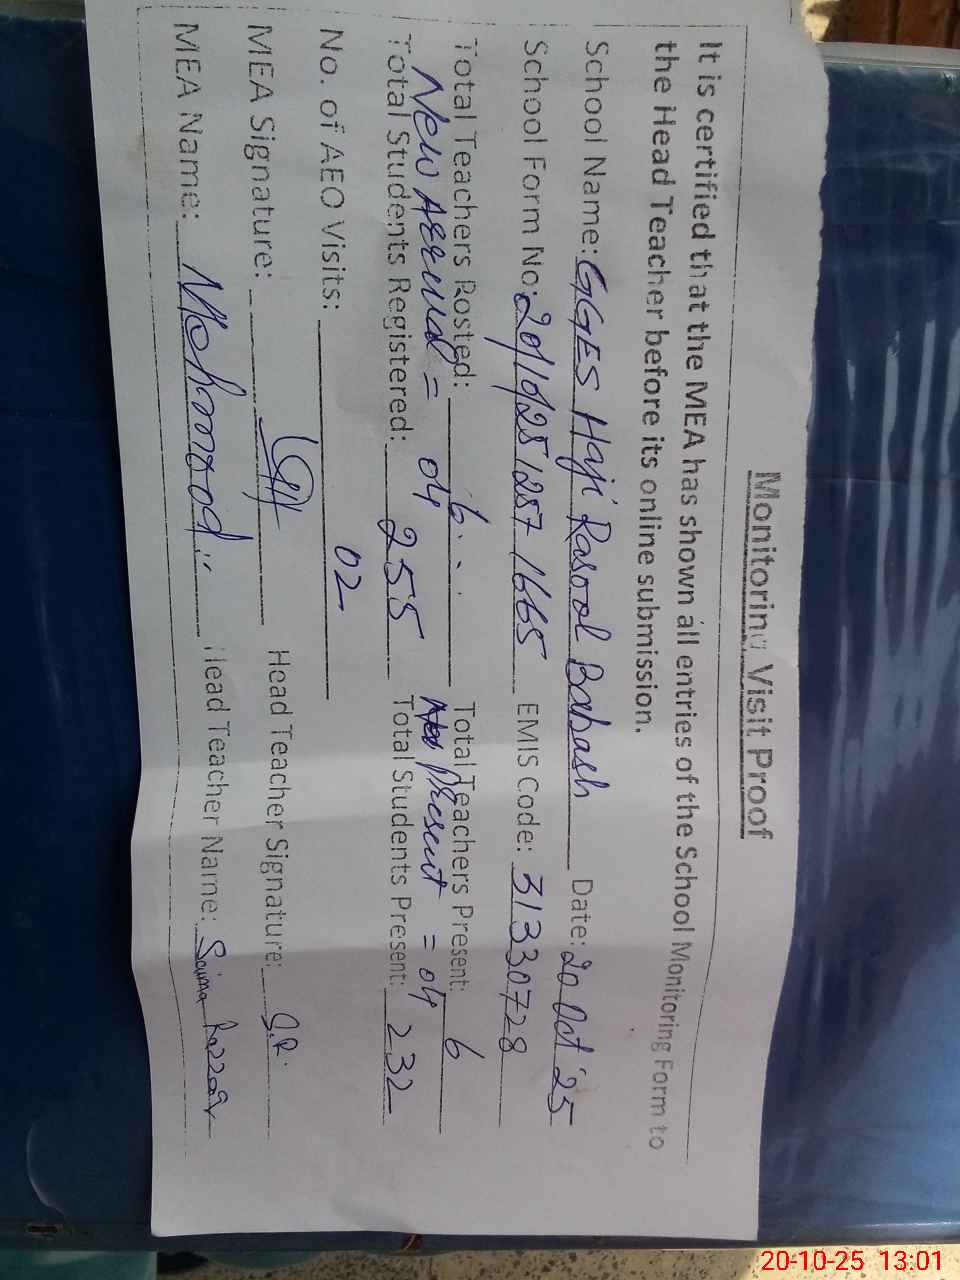 Monitoring Visit Proof
It is certified that the MEA has shown all entries of the School Monitoring Form to
the Head Teacher before its online submission.
School Name: GGES Haji Rasool Bahash Date: 20 Oct '25
School Form No: 201025 1257 1665 EMIS Code: 31330728
Total Teachers Rosted: 6 Total Teachers Present: 6
New = 04 Present = 04
Total Students Registered: 255 Total Students Present: 232
No. of AEO Visits: 02
MEA Signature: Head Teacher Signature: S.R.
MEA Name: Mehmood Head Teacher Name: Saima Razzaq
20-10-25 13:01